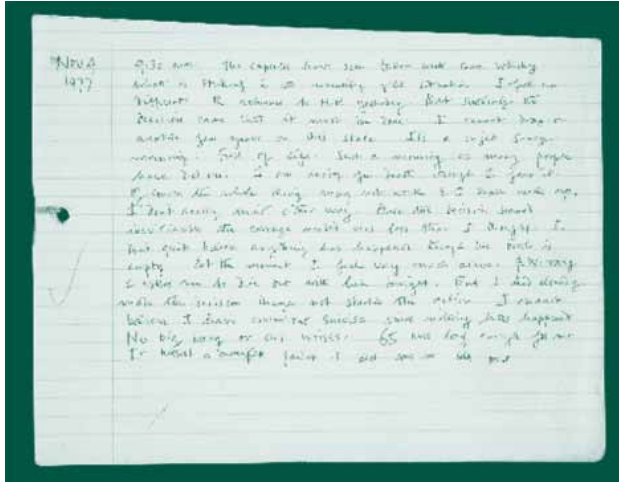 Nov 4 9.30 a.m. The capsules have been taken with some whisky
1977 What is striking is the unreality of the situation I feel no
different. But suddenly the
decision came that it must be done. I cannot drag on
another few years in this state. It's a bright sunny
morning. Full of life. Such a morning as many people
have died on. I am ready for death though I fear it.
Of course the whole thing may not work & I shall wake up.
I don't really mind either way. Once the decision seems
inevitable the courage needed was less than I thought. I
don't quite believe anything has happened though the bottle is
empty. At the moment I feel very much alive. rang
& asked me to dine out with him tonight. But I had already
made the decision though not started the action I cannot
believe I have committed suicide since nothing has happened
No big bang or cut wrists. 65 was long enough for me
It wasn't a complete failure I did some